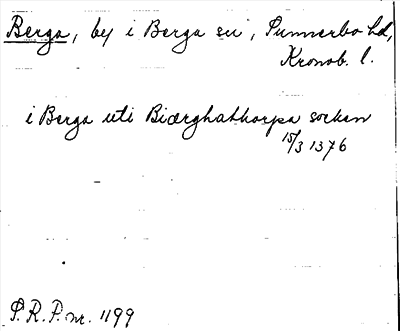 Berga, by i Berga sn, Sunnerbo hd,
Kronob. l.
i Berga uti Biærghathorpa socken
15/3 1376
S.R.P. nr. 1199